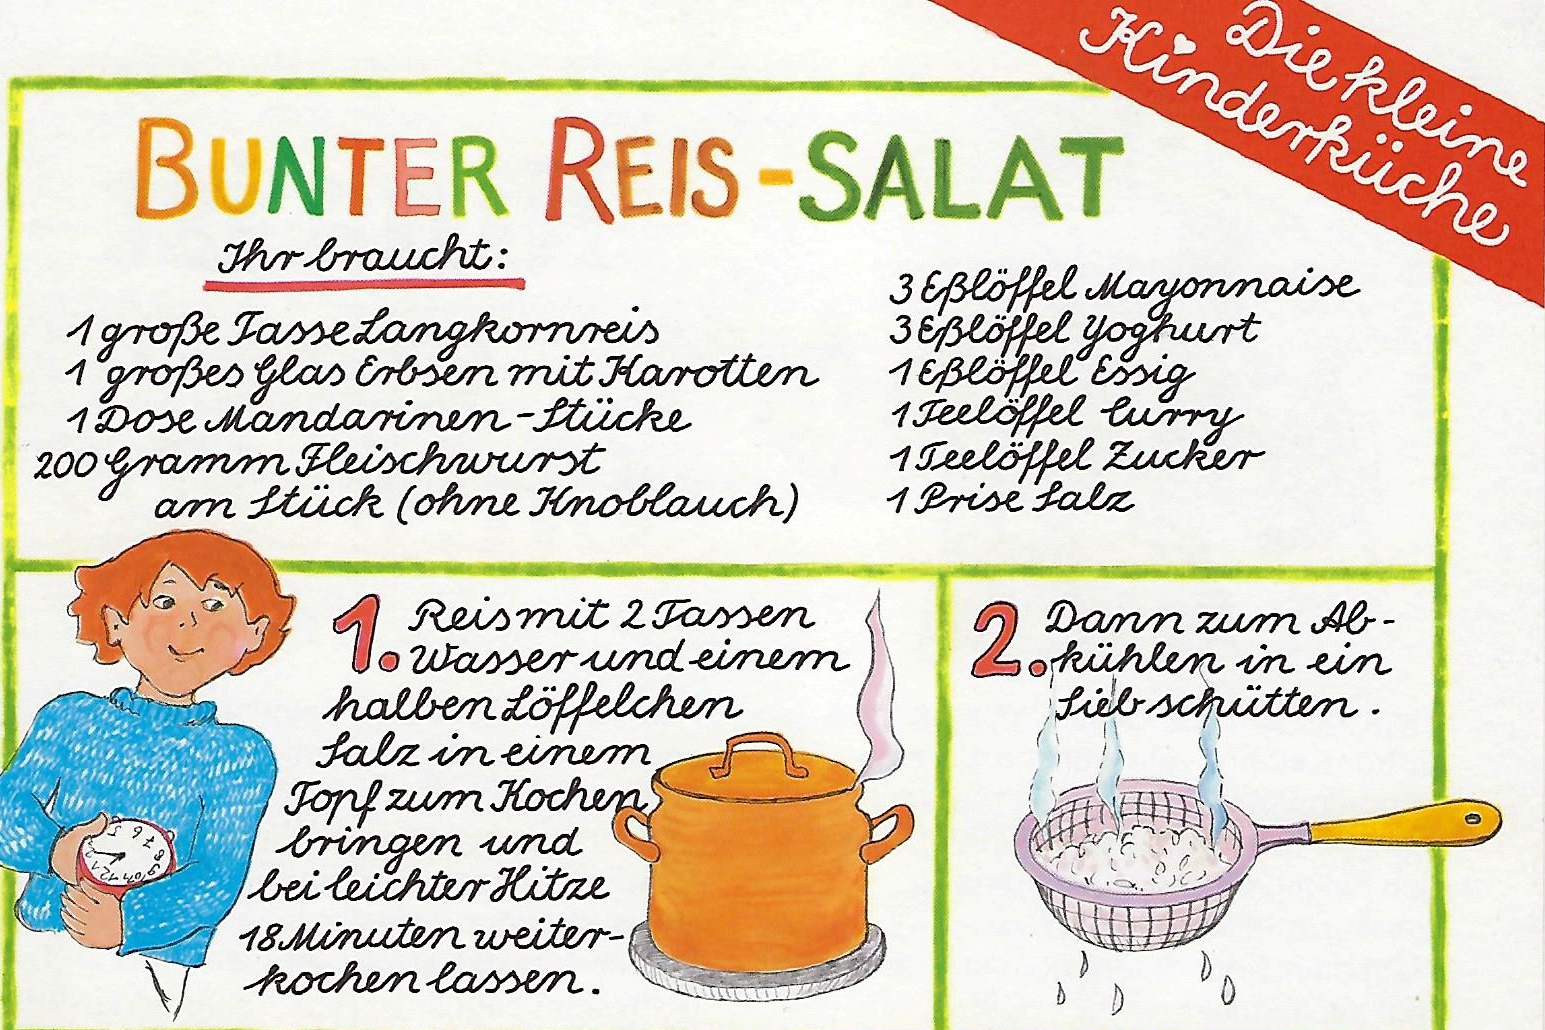 Die kleine
Kinderküche
BUNTER REIS-SALAT
Ihr braucht:
1 große Tasse Langkornreis
1 großes Glas Erbsen mit Karotten
1 Dose Mandarinen-Stücke
200 Gramm Fleischwurst
am Stück (ohne Knoblauch)
3 Eßlöffel Mayonnaise
3 Eßlöffel Yoghurt
1 Eßlöffel Essig
1 Teelöffel Curry
1 Teelöffel Zucker
1 Prise Salz
1. Reis mit 2 Tassen
Wasser und einem
halben Löffelchen
Salz in einem
Topf zum Kochen
bringen und
bei leichter Hitze
18 Minuten weiter-
kochen lassen.
2. Dann zum Ab-
kühlen in ein
Sieb schütten.